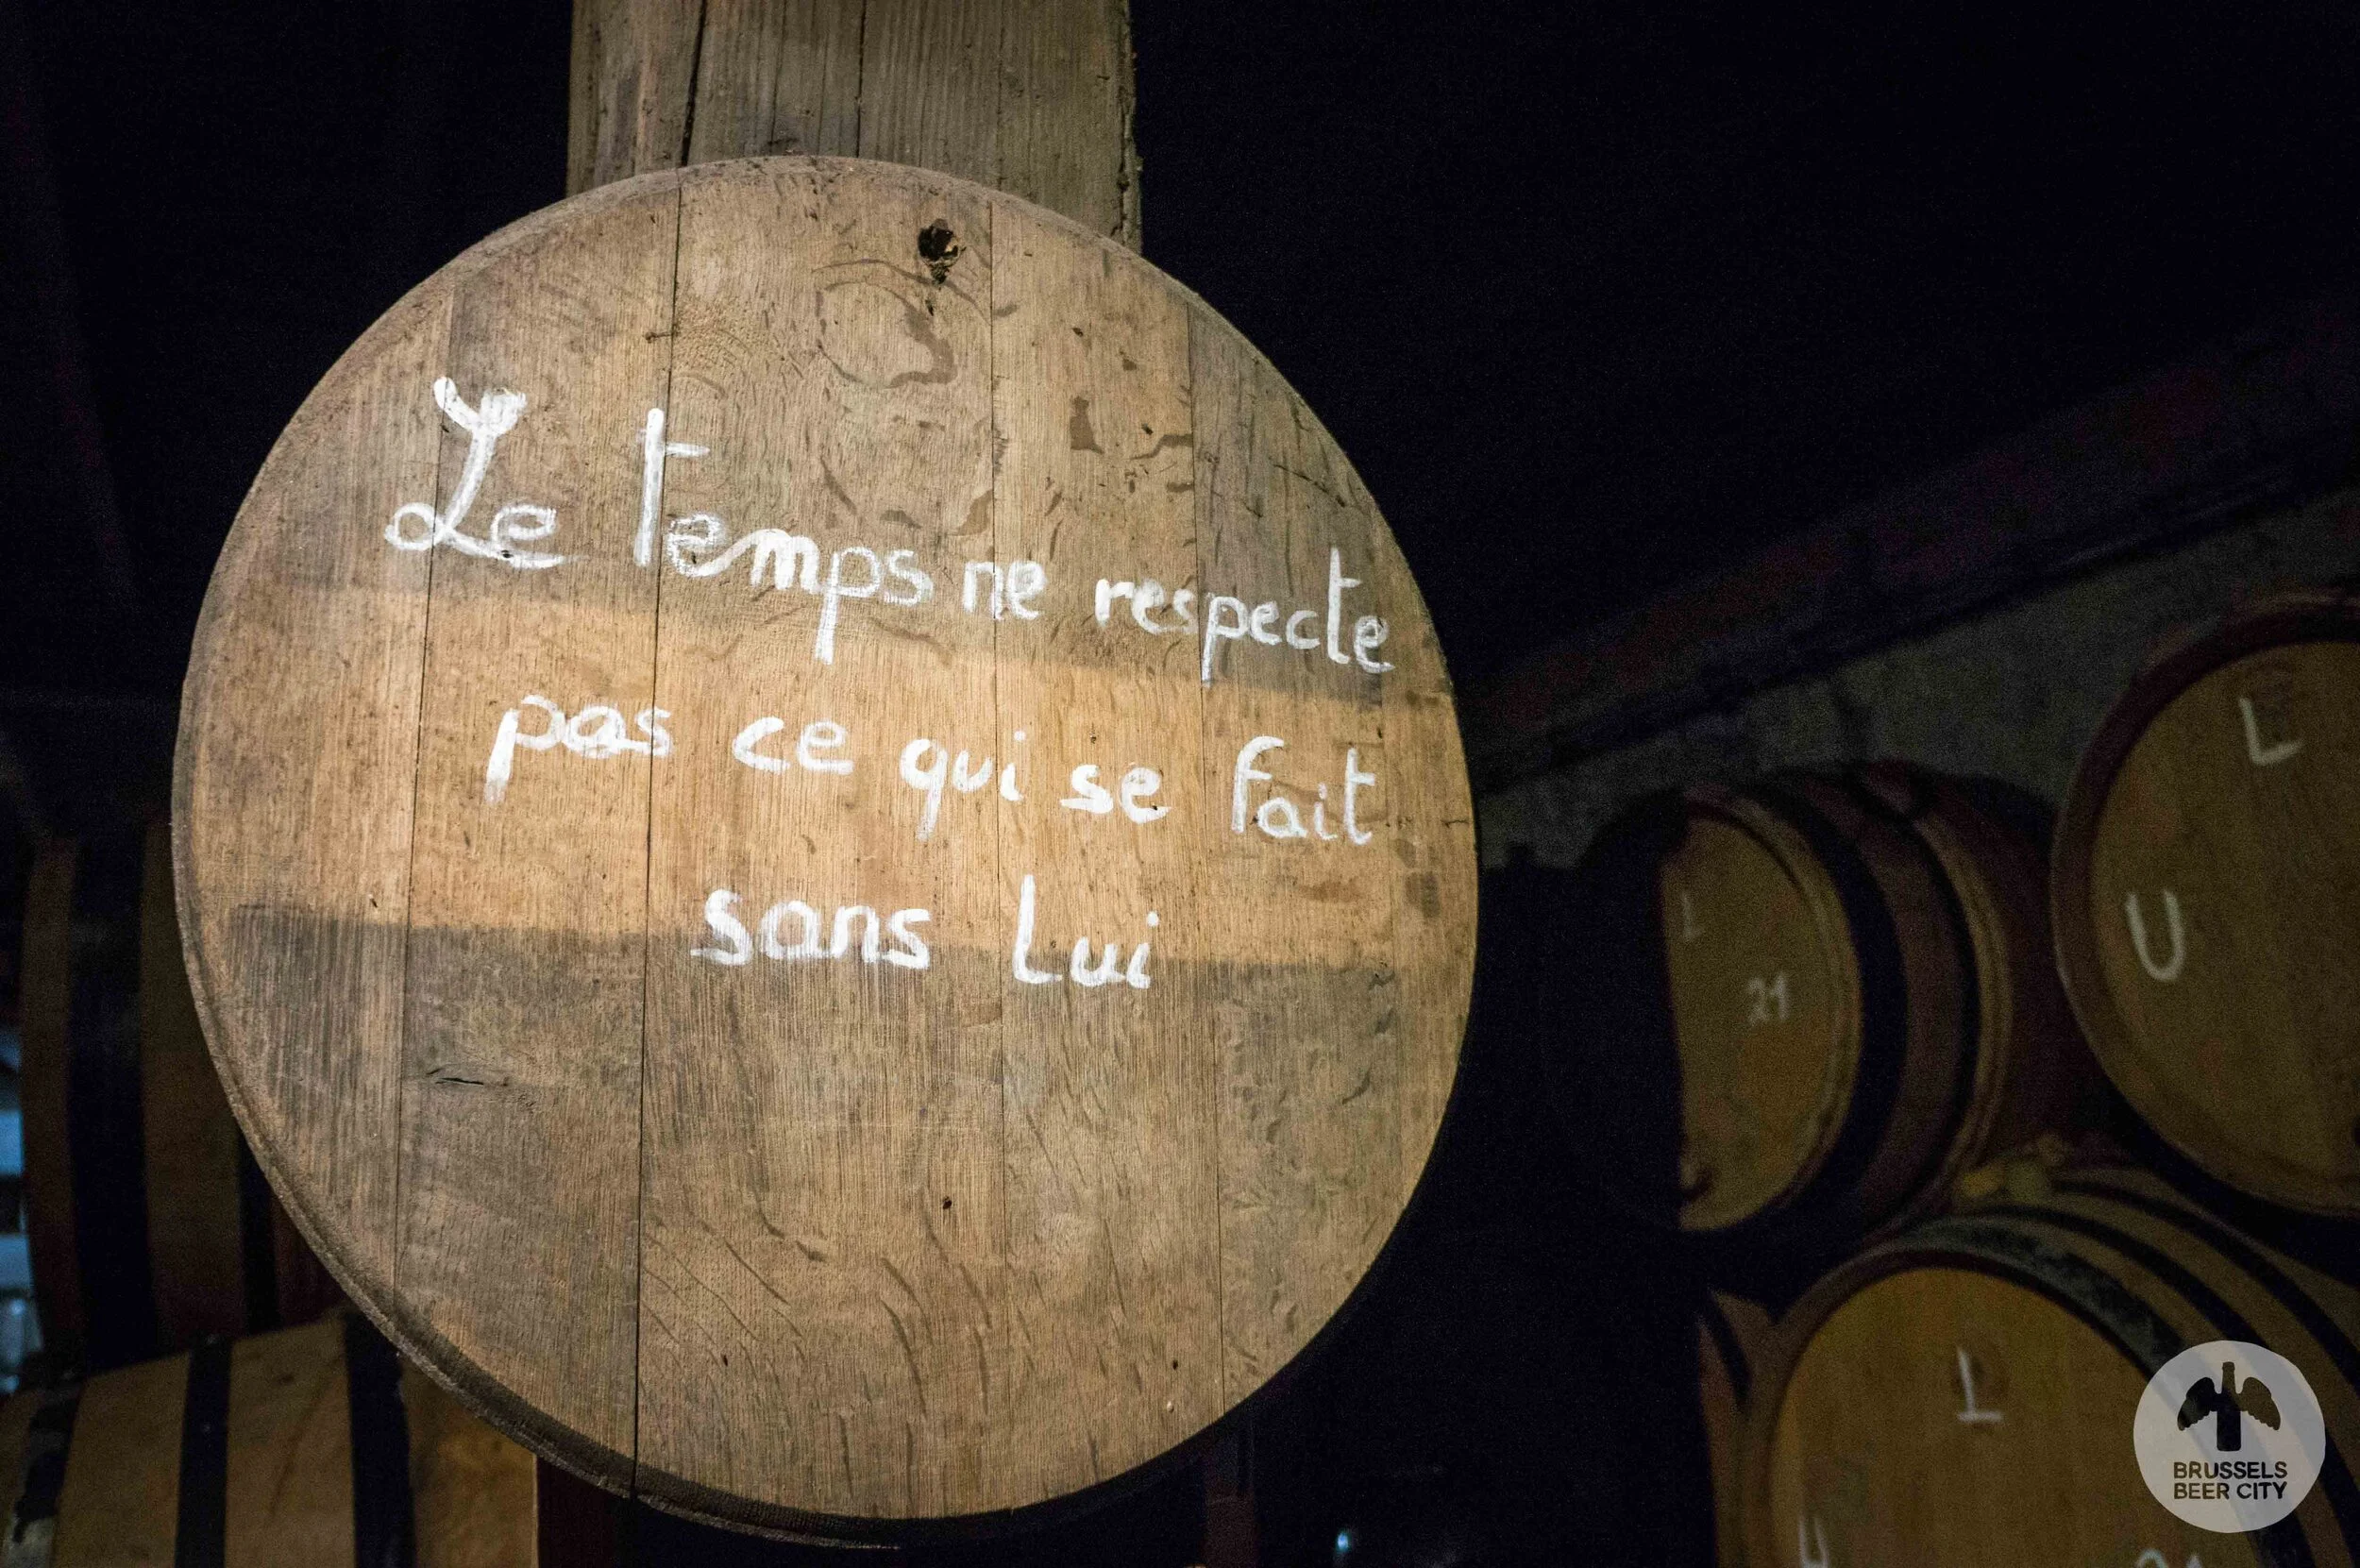 Le temps ne respecte
pas ce qui se fait
sans Lui
L
21
L
U
L
BRUSSELS
BEER CITY